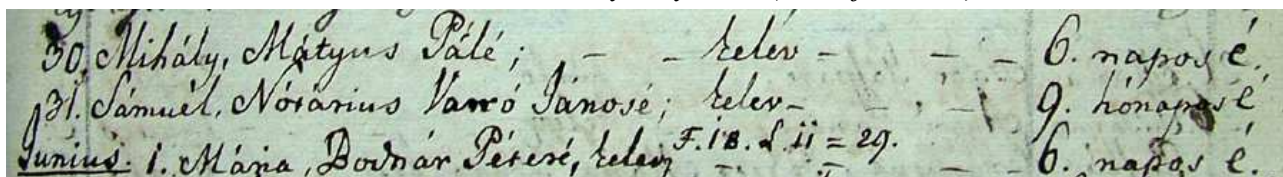 30. Mihály, Mátyus Pálé; - - kelev - - - 6. napos é.
31. Sámuel, Nótárius Varró Jánosé; kelev - - - 9. hónapos é
Junius. 1. Mária, Bodnár Péteré, kelev, F. 18. L. 11 = 29. 6. napos é.